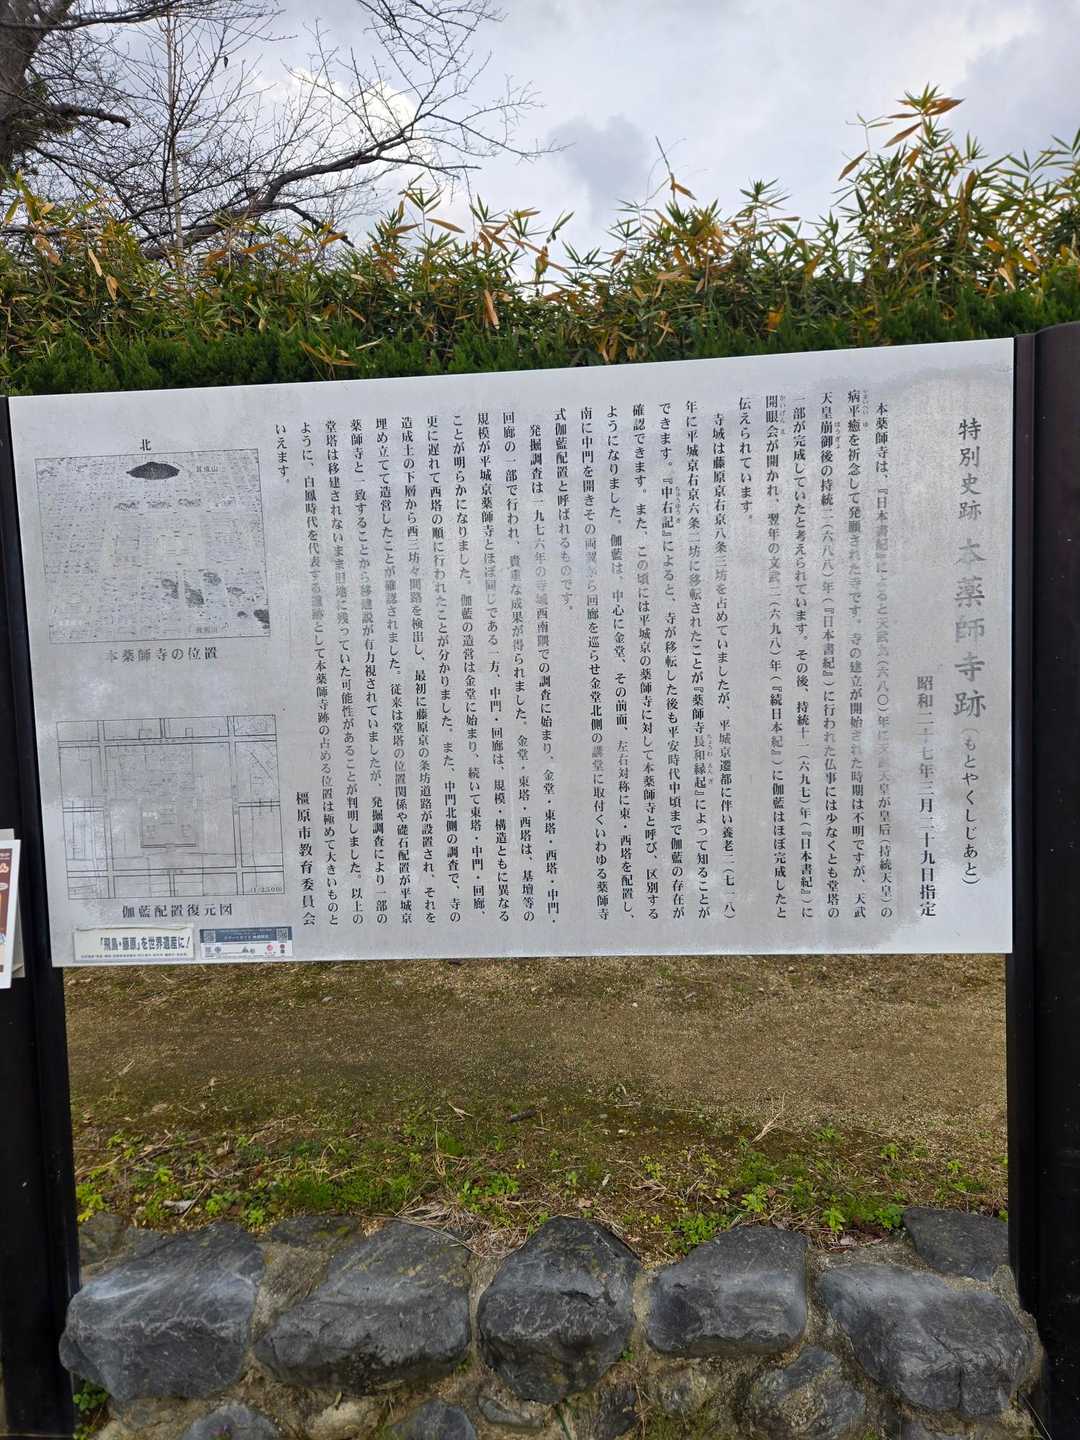 特別史跡 本薬師寺跡(もとやくしじあと)
昭和二十七年三月二十九日指定
本薬師寺は、『日本書紀』によると天武九(六八〇)年に天武天皇が皇后(持統天皇)の
病平癒を祈念して発願された寺です。寺の建立が開始された時期は不明ですが、天武
天皇崩御後の持統二(六八八)年(『日本書紀』)に行われた仏事には少なくとも堂塔の
一部が完成していたと考えられています。その後、持統十一(六九七)年(『日本書紀』)に
開眼会が開かれ、翌年の文武二(六九八)年(『続日本紀』)に伽藍はほぼ完成したと
伝えられています。
寺域は藤原京右京八条三坊を占めていましたが、平城京遷都に伴い養老二(七一八)
年に平城京右京六条二坊に移転されたことが『薬師寺長和縁起』によって知ることが
できます。『中右記』によると、寺が移転した後も平安時代中頃まで伽藍の存在が
確認できます。また、この頃には平城京の薬師寺に対して本薬師寺と呼び、区別する
ようになりました。伽藍は、中心に金堂、その前面、左右対称に東・西塔を配置し、
南に中門を開きその両翼から回廊を巡らせ金堂北側の講堂に取付くいわゆる薬師寺
式伽藍配置と呼ばれるものです。
発掘調査は一九七六年の寺域西南隅での調査に始まり、金堂・東塔・西塔・中門・
回廊の一部で行われ、貴重な成果が得られました。金堂・東塔・西塔は、基壇等の
規模が平城京薬師寺とほぼ同じである一方、中門・回廊は、規模・構造ともに異なる
ことが明らかになりました。伽藍の造営は金堂に始まり、続いて東塔・中門・回廊、
更に遅れて西塔の順に行われたことが分かりました。また、中門北側の調査で、寺の
造成土の下層から西三坊々間路を検出し、最初に藤原京の条坊道路が設置され、それを
埋め立てて造営したことが確認されました。従来は堂塔の位置関係や礎石配置が平城京
薬師寺と一致することから移建説が有力視されていましたが、発掘調査により一部の
堂塔は移建されないまま旧地に残っていた可能性があることが判明しました。以上の
ように、白鳳時代を代表する遺跡として本薬師寺跡の占める位置は極めて大きいものと
いえます。
橿原市教育委員会
北
耳成山
本薬師寺の位置
伽藍配置復元図
「飛鳥・藤原」を世界遺産に!